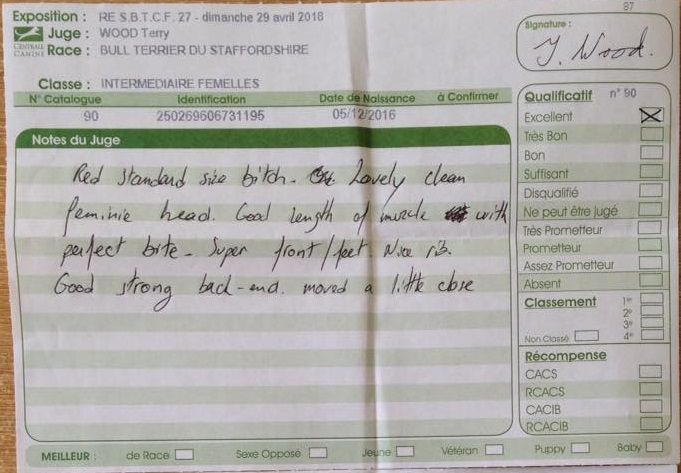 87
Exposition : RE S.B.T.C.F. 27 - dimanche 29 avril 2018
Juge : WOOD Terry
CENTRALE CANINE
Race : BULL TERRIER DU STAFFORDSHIRE
Signature :
J. Wood.
Classe : INTERMEDIAIRE FEMELLES
N° Catalogue Identification Date de Naissance à Confirmer
90 250269606731195 05/12/2016
Notes du Juge
Red standard size bitch - Lovely clean
feminie head. Good length of muscle with
perfect bite - Super front/feet. Nice rib.
Good strong back-end. moved a little close
Qualificatif n° 90
Excellent
Très Bon
Bon
Suffisant
Disqualifié
Ne peut être Jugé
Très Prometteur
Prometteur
Assez Prometteur
Absent
Classement 1er
2e
3e
Non Classé 4e
Récompense
CACS
RCACS
CACIB
RCACIB
MEILLEUR : de Race Sexe Opposé Jeune Vétéran Puppy Baby